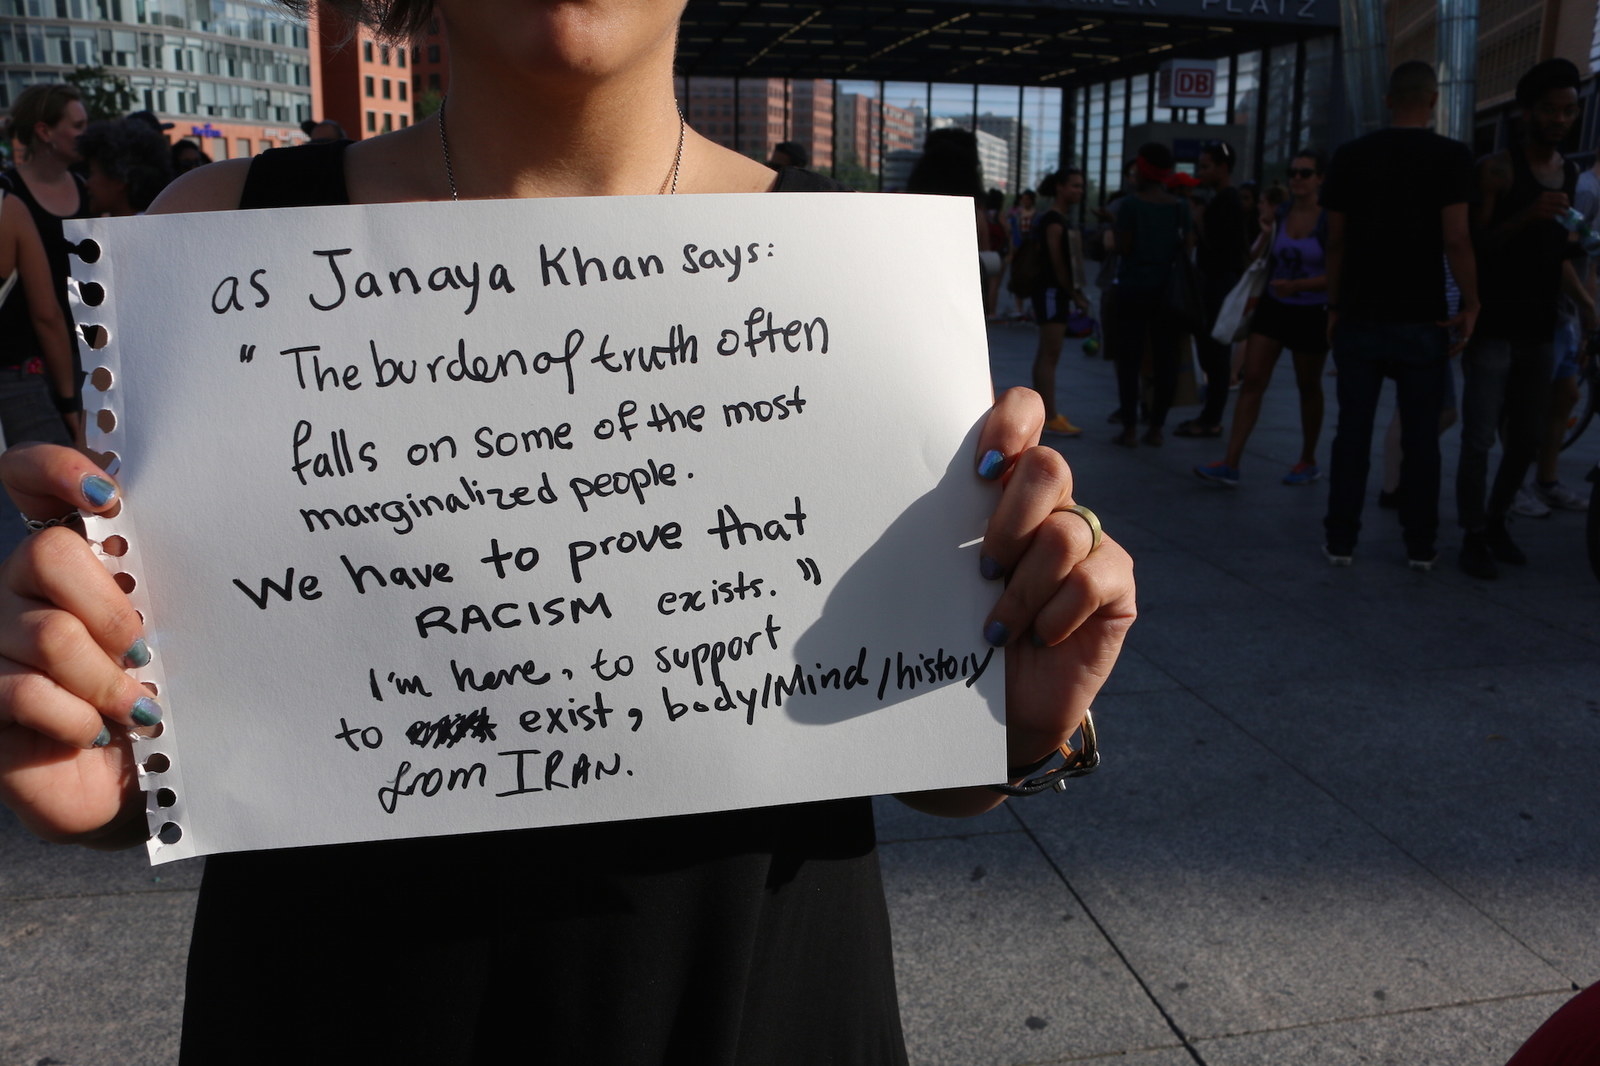 MER PLATZ
DB
as Janaya Khan says:
" The burden of truth often
falls on some of the most
marginalized people.
We have to prove that
RACISM exists. "
I'm here, to support
to exist, body/Mind/history
from IRAN.